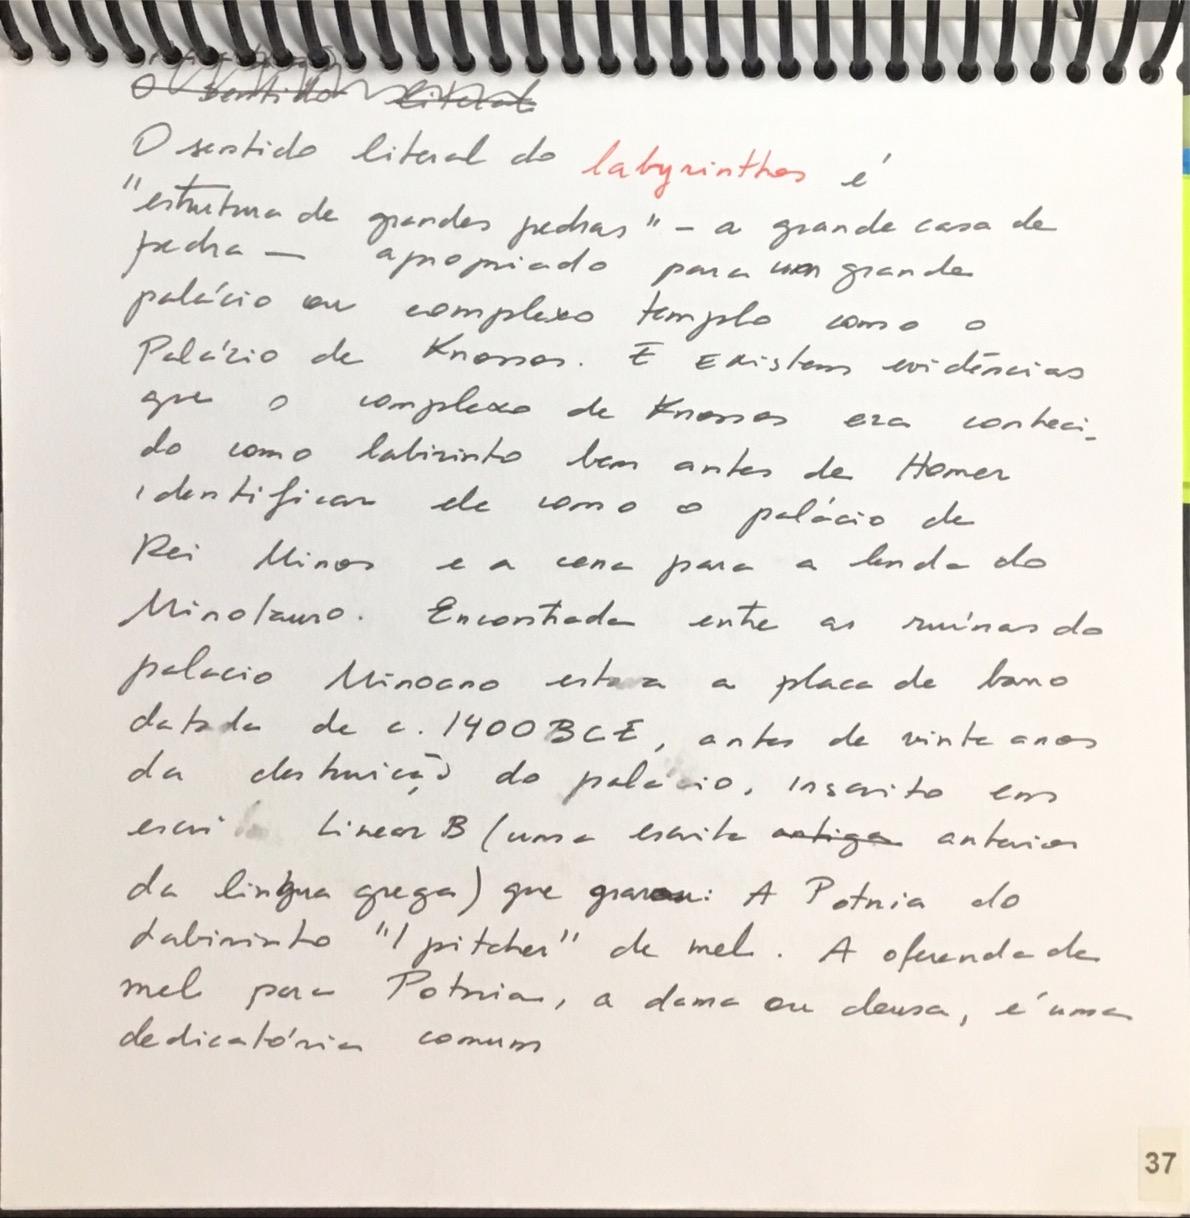 O sentido literal
O sentido literal do labyrinthos é
"estrutura de grandes pedras" - a grande casa de
pedra — apropriado para um grande
palácio ou complexo templo como o
Palázio de Knossos. E existem evidências
que o complexo de Knossos era conheci-
do como labirinto bem antes de Homer
identificar ele como o palácio de
Rei Minos e a cena para a lenda do
Minotauro. Encontrada entre as ruínas do
palacio Minoano estava a placa de barro
datada de c. 1400 BCE, antes de vinte anos
da destruição do palácio, inscrito em
escri Linear B (uma escrita antiga anterior
da língua grega) que gravou: A Potnia do
Labirinto "1 pitcher" de mel. A oferenda de
mel para Potnia, a dama ou deusa, é uma
dedicatória comum
37